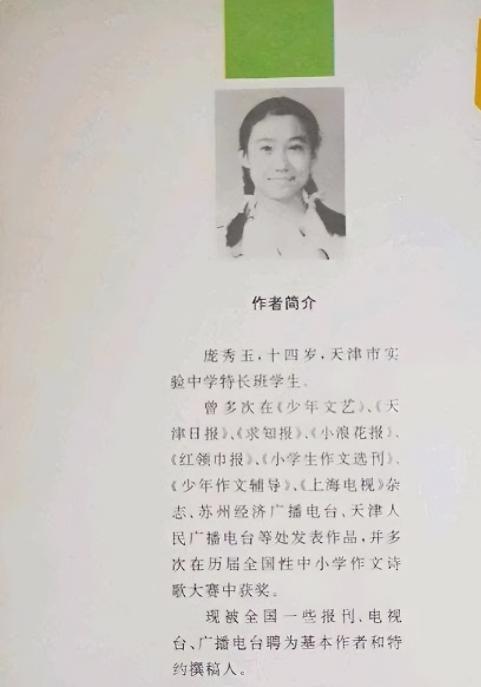 作者简介
庞秀玉，十四岁，天津市实
验中学特长班学生。
曾多次在《少年文艺》、《天
津日报》、《求知报》、《小浪花报》、
《红领巾报》、《小学生作文选刊》、
《少年作文辅导》、《上海电视》杂
志、苏州经济广播电台、天津人
民广播电台等处发表作品，并多
次在历届全国性中小学作文诗
歌大赛中获奖。
现被全国一些报刊、电视
台、广播电台聘为基本作者和特
约撰稿人。